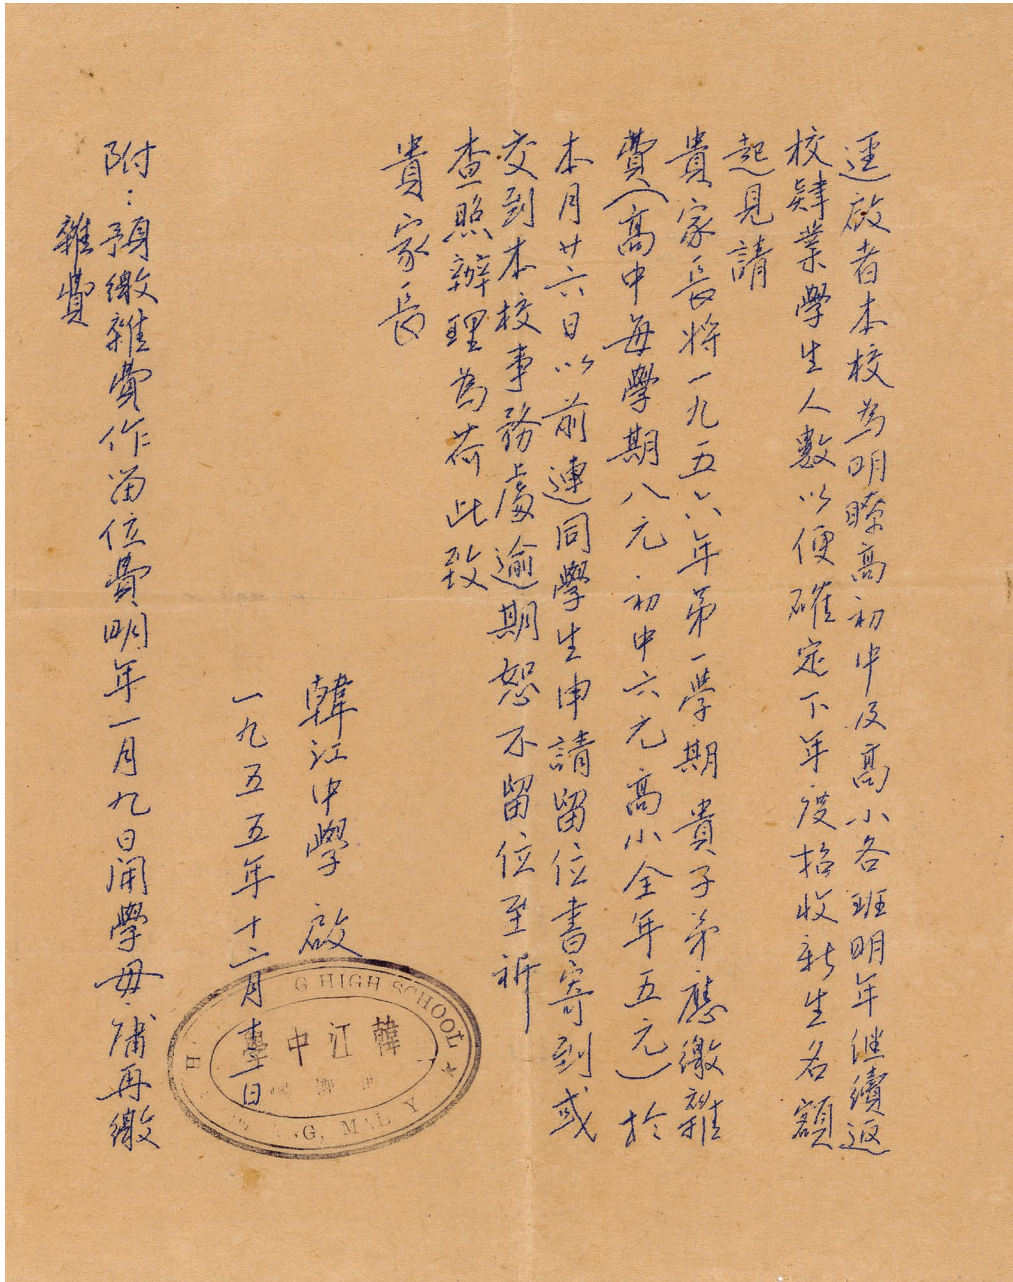 逕啟者本校為明瞭高初中及高小各班明年继續返
校肄業學生人數以便確定下年度招收新生名額
起見請
貴家長將一九五六年第一學期貴子弟應繳雜
費(高中每學期八元初中六元高小全年五元)於
本月廿六日以前連同學生申請留位書寄到或
交到本校事務處逾期恕不留位至祈
查照辦理為荷此致
貴家長
韓江中學 啟
一九五五年十二月 日
附:預繳雜費作留位費明年一月九日開學毋庸再繳
雜費
G HIGH SCHOOL
韓江中